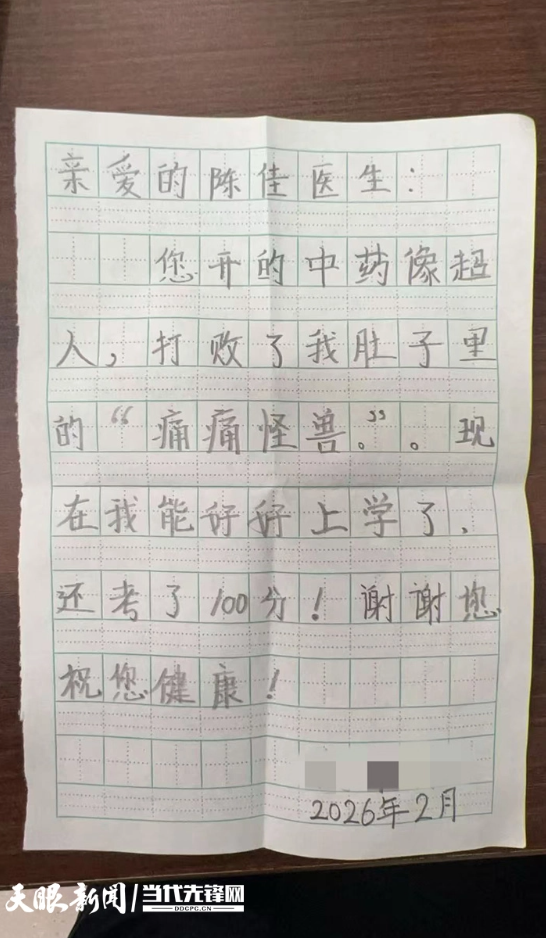 亲爱的陈佳医生：
您开的中药像超
人，打败了我肚子里
的“痛痛怪兽。”。现
在我能好好上学了，
还考了100分！谢谢您
祝您健康！
2026年2月
天眼新闻 当代先锋网
DDCPC.CN